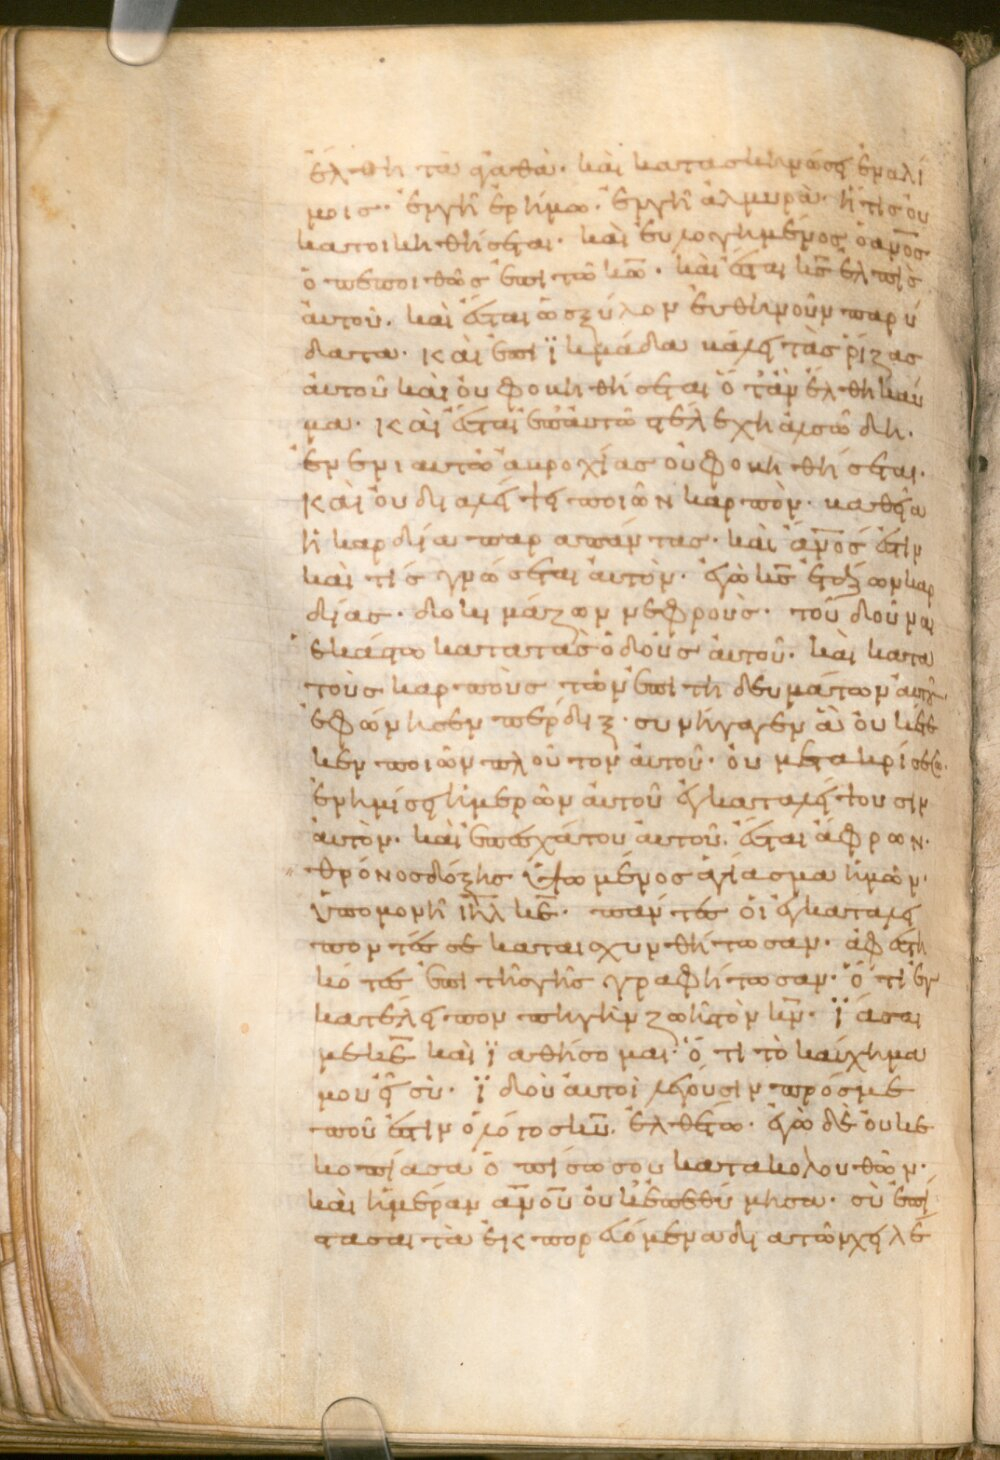 ἔλθη τὰ ἀγαθά· καὶ κατασκηνώσει ἐν ἁλί
μοις· ἐν γῆ ἐρήμω· ἐν γῆ ἁλμυρᾶ· ἥτις οὐ
κατοικηθήσεται· καὶ εὐλογημένος ὁ ἄνος
ὁ πεποιθὼς ἐπὶ τῶ κω· καὶ ἔσται κς ἐλπὶς
αὐτοῦ· καὶ ἔσται ὡς ξύλον εὐθηνοῦν παρ ὕ
δατα· καὶ ἐπὶ ϊκμάδα βαλεῖ τὰς ῥίζας
αὐτοῦ καὶ οὐ φοβηθήσεται ὅταν ἔλθη καῦ
μα· καὶ ἔσται ἐπ αὐτῶ στελέχη ἀλσώδη·
ἐν ἐνιαυτῶ ἀβροχίας οὐ φοβηθήσεται·
καὶ οὐ διαλείψει ποιῶν καρπόν· βαθεῖα
ἡ καρδία παρα πάντας· καὶ ἄνος ἐστιν
καὶ τίς γνώσεται αὐτόν· ἐγὼ κς ἐτάζων καρ
δίας· δοκιμάζων νεφρούς· τοῦ δοῦναι
ἑκάστω κατα τὰς ὁδοὺς αὐτοῦ· καὶ κατα
τοὺς καρποὺς τῶν ἐπιτηδευμάτων αὐτοῦ
ἐφώνησεν πέρδιξ· συνήγαγεν ἃ οὐκ ἔτε
κεν ποιῶν πλοῦτον αὐτοῦ· οὐ μετα κρίσεως·
ἐν ἡμίσει ἡμερῶν αὐτοῦ ἐγκαταλείψουσιν
αὐτόν· καὶ ἐπ ἐσχάτου αὐτοῦ· ἔσται ἄφρων·
θρόνος δόξης ὑψωμένος ἁγίασμα ἡμῶν·
ὑπομονὴ ιηλ κε· πάντες οἱ ἐγκαταλει
πόντές σε καταισχυνθήτωσαν· ἀφεστη
κότες ἐπὶ τῆς γῆς γραφήτωσαν· ὅτι ἐγ
κατέλειπον πηγὴν ζωῆς τὸν κν· ϊασαι
με κε καὶ ϊαθήσομαι· ὅτι τὸ καύχημα
μου εἶ σύ· ϊδοὺ αὐτοὶ λέγουσιν πρός με
ποῦ ἐστιν ὁ λόγος κυ· ἐλθέτω· ἐγὼ δὲ οὐκ ἐ
κοπίασα ὀπίσω σου κατακολουθῶν·
καὶ ἡμέραν ἀνου οὐκ ἐπεθύμησα· σὺ ἐπί
στασαι τὰ ἐκπορευόμενα δια τῶν χειλέ